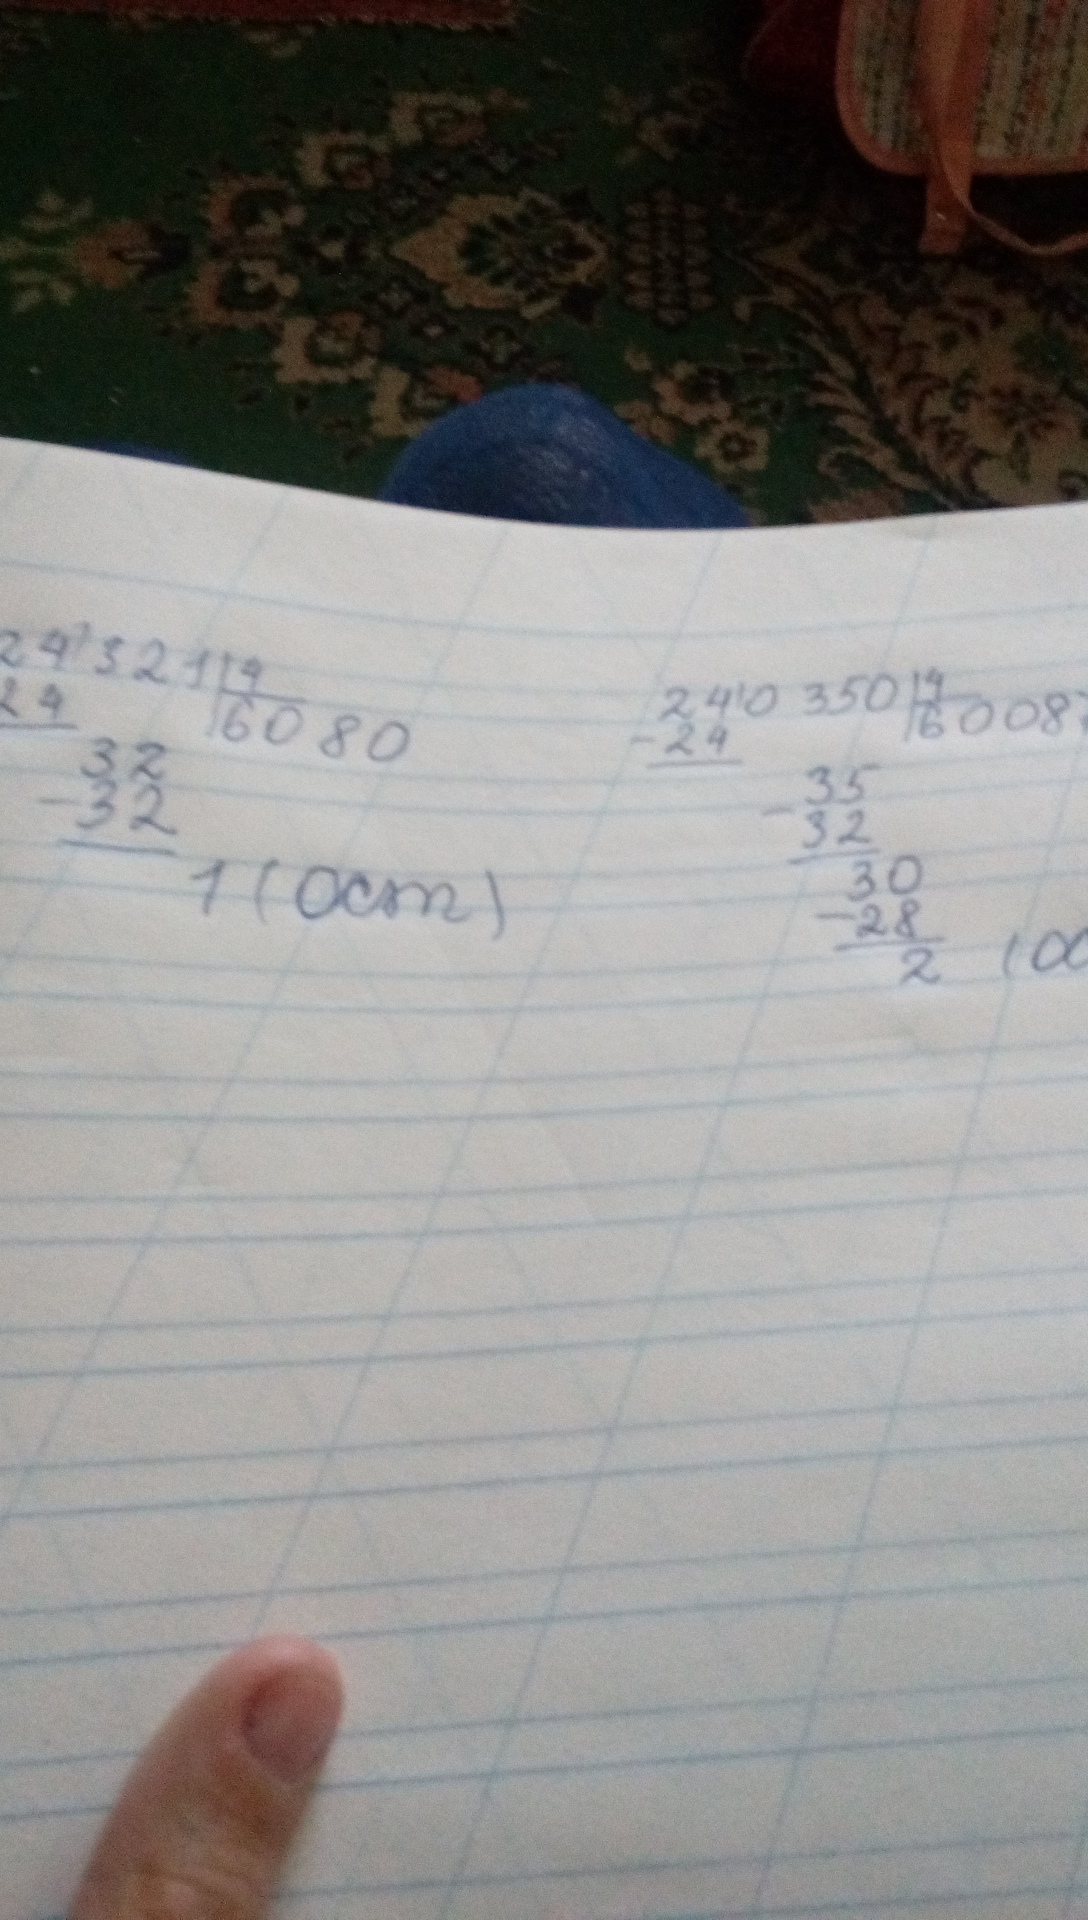 24'321|4
24 6080
32
-32
1 (Ост)
24'0 350|4
-24 60087
35
-32
30
-28
2 (Ос